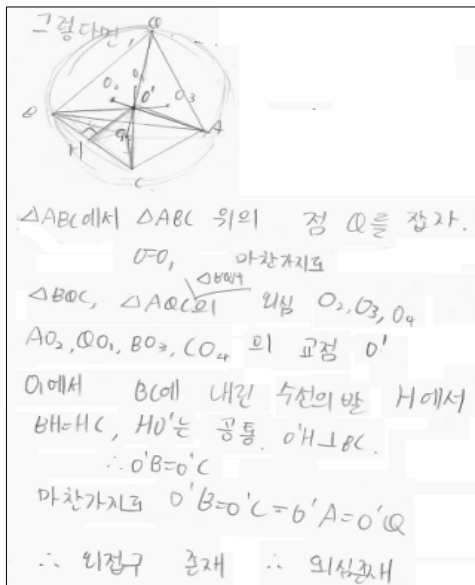 그렇다면,
Q
O₂ O₁ O' O₃
B
A
H
C
△ABC에서 △ABC 위의 점 Q를 잡자.
마찬가지로
△BQA
△BQC, △AQC의 외심 O₂, O₃, O₄
AO₂, QO₁, BO₃, CO₄ 의 교점 O'
O₁에서 BC에 내린 수선의 발 H에서
BH=HC, HO'는 공통. O'H⊥BC.
∴ O'B=O'C
마찬가지로 O'B=O'C=O'A=O'Q
∴ 외접구 존재 ∴ 외심존재